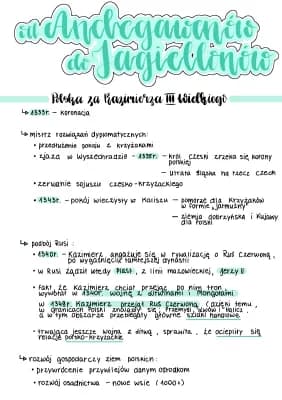 od Andegawenów
do Jagiellonów
Polska za Kazimierza III Wielkiego
↳ 1333r. - koronacja
↳ mistrz rozwiązań dyplomatycznych:
• przedłużenie pokoju z krzyżakami
• zjazd w Wyszechradzie - 1335r. - król czeski zrzeka się korony
polskiej
- utrata Śląska na rzecz czech
• zerwanie sojuszu czesko-krzyżackiego
• 1343r. - pokój wieczysty w Kaliszu - pomorze dla Krzyżaków
w formie „jałmużny"
- ziemia dobrzyńska i Kujawy
dla Polski
↳ podbój Rusi:
• 1340r. - Kazimierz angażuje się w rywalizację o Ruś Czerwoną,
po wygaśnięciu tamtejszej dynastii
• w Rusi rządził wtedy Piast, z linii mazowieckiej, Jerzy II
• fakt, że Kazimierz chciał przejąć po nim tron,
wywołał w 1340r. wojnę z Litwinami i Mongołami
w 1349r. Kazimierz przejął Ruś Czerwoną (dzięki temu,
w granicach Polski znalazły się Przemyśl, Lwów i Halicz,
a w tym obszarze przebiegały główne szlaki handlowe
• trwająca jeszcze wojna z Litwą, sprawiła, że ociepliły się
relacje polsko-krzyżackie
↳ rozwój gospodarczy ziem polskich:
• przywrócenie przywilejów danym ośrodkom
• rozwój osadnictwa - nowe wsie (1000+)